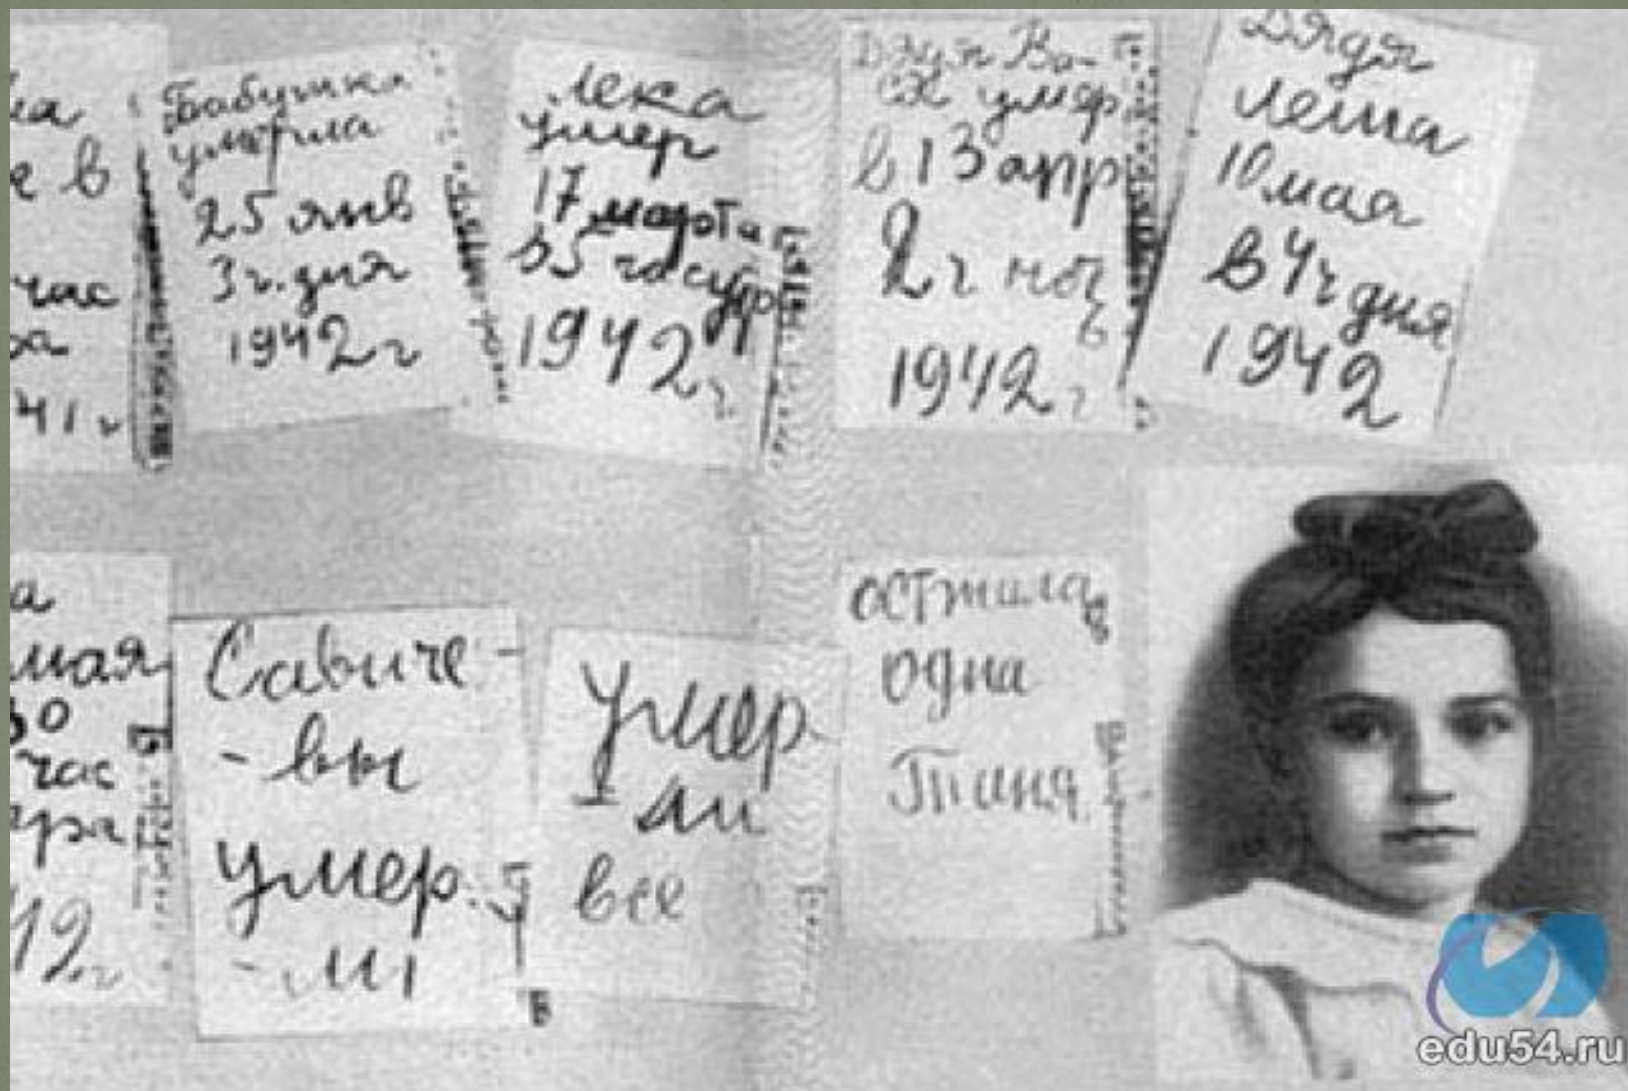 ла
е в
час
ра
41 г
Бабушка
умерла
25 янв
3 ч. дня
1942 г
Лека
умер
17 марта
в 5 часутр
1942 г
Дядя Ва-
ся умер
в 13 апр
2 ч ноч
ь
1942 г
Дядя
Леша
10 мая
в 4 ч дня
1942
а
мая
30
час
тра
42 г
Савиче-
-вы
умер-
-ли
Умер-
-ли
все
Осталась
одна
Таня
edu54.ru